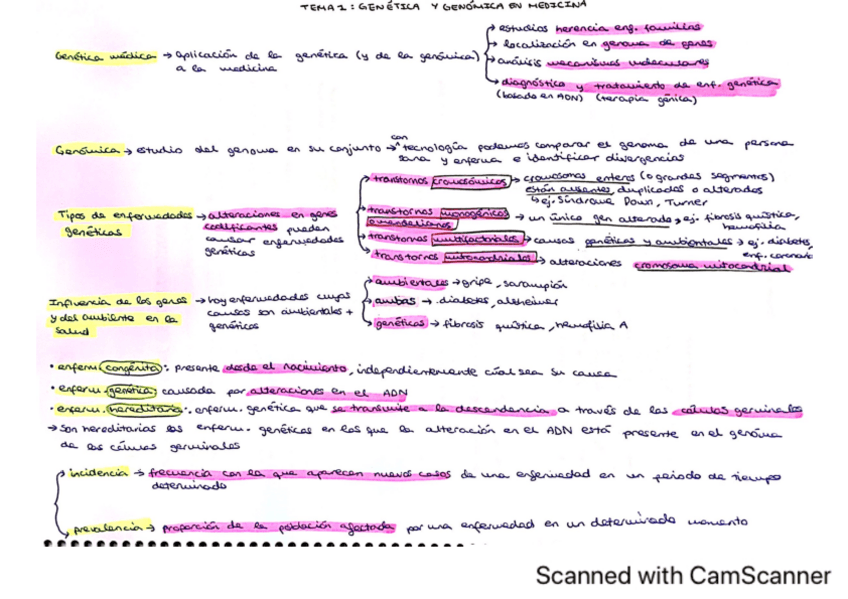 TEMA 1: GENÉTICA Y GENÓMICA EN MEDICINA
Genética médica → aplicación de la genética (y de la genómica) a la medicina
→ estudios herencia enf. familias
→ localización en genoma de genes
→ análisis mecanismos moleculares
→ diagnóstico y tratamiento de enf. genética
(basado en ADN) (terapia génica)
Genómica → estudio del genoma en su conjunto → con tecnología podemos comparar el genoma de una persona
sana y enferma e identificar divergencias
Tipos de enfermedades genéticas → alteraciones en genes codificantes pueden causar enfermedades genéticas
→ transtornos cromosómicos → cromosomas enteros (o grandes segmentos)
están ausentes, duplicados o alterados
↳ ej. Síndrome Down, Turner
→ transtornos monogénicos o mendelianos → un único gen alterado → ej. fibrosis quística, hemofilia
→ transtornos multifactoriales → causas genéticas y ambientales → ej. diabetes, enf. coronaria
→ transtornos mitocondriales → alteraciones cromosoma mitocondrial
Influencia de los genes y del ambiente en la salud → hay enfermedades cuyas causas son ambientales + genéticas
→ ambientales → gripe, sarampión
→ ambas → diabetes, alzheimer
→ genéticas → fibrosis quística, hemofilia A
• enferm. congénita: presente desde el nacimiento, independientemente cúal sea su causa
• enferm. genética: causada por alteraciones en el ADN
• enferm. hereditaria: enferm. genética que se transmite a la descendencia a través de las células germinales
→ son hereditarias las enferm. genéticas en las que la alteración en el ADN está presente en el genóma
de las células germinales
→ incidencia → frecuencia con la que aparecen nuevos casos de una enfermedad en un periodo de tiempo
determinado
→ prevalencia → proporción de la población afectada por una enfermedad en un determinado momento
Scanned with CamScanner